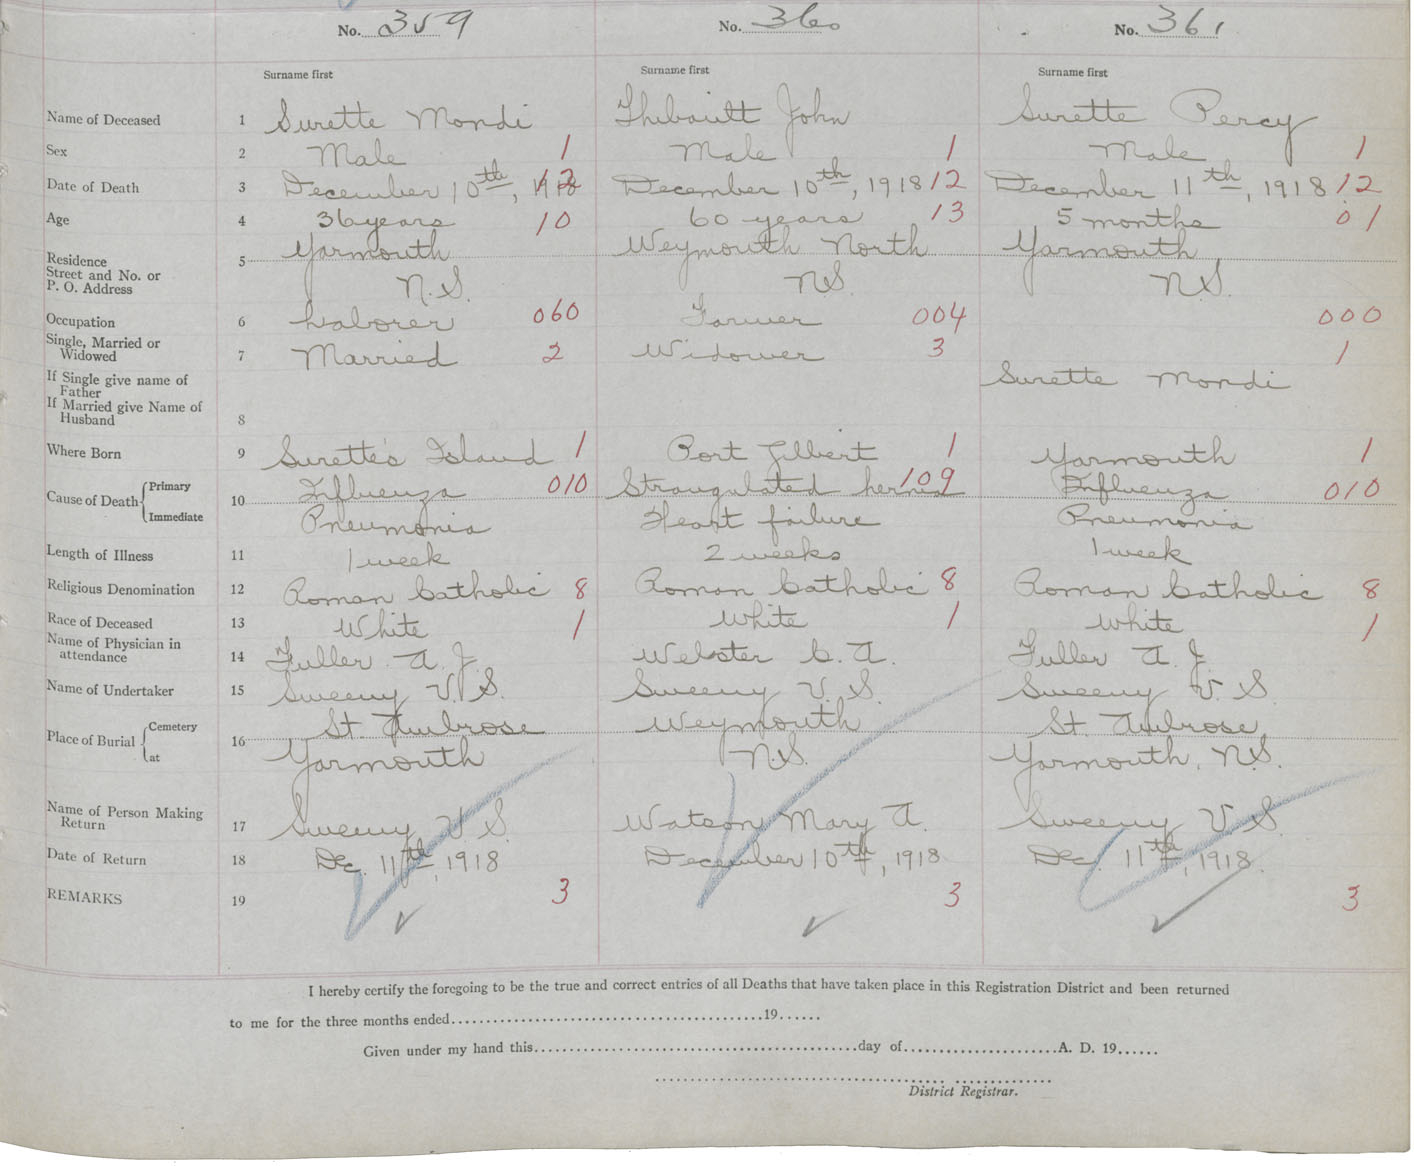 No. 359 No. 360 No. 361
Surname first Surname first Surname first
Name of Deceased 1 Surette Mondi Thibault John Surette Percy
Sex 2 Male 1 Male 1 Male 1
Date of Death 3 December 10th, 1918 12 December 10th, 1918 12 December 11th, 1918 12
Age 4 36 years 10 60 years 13 5 months 01
Residence 5 Yarmouth Weymouth North Yarmouth
Street and No. or
P. O. Address N.S. N.S. N.S.
Occupation 6 Laborer 060 Farmer 004 000
Single, Married or
Widowed 7 Married 2 Widower 3 1
If Single give name of
Father Surette Mondi
If Married give Name of
Husband 8
Where Born 9 Surette's Island 1 Port Gilbert 1 Yarmouth 1
Cause of Death Primary 10 Influenza 010 Strangulated hernia 109 Influenza 010
Immediate Pneumonia Heart failure Pneumonia
Length of Illness 11 1 week 2 weeks 1 week
Religious Denomination 12 Roman Catholic 8 Roman Catholic 8 Roman Catholic 8
Race of Deceased 13 White 1 White 1 White 1
Name of Physician in
attendance 14 Fuller A. J. Webster C. A. Fuller A. J.
Name of Undertaker 15 Sweeny V. S. Sweeny V. S. Sweeny V. S.
Place of Burial Cemetery 16 St. Ambrose Weymouth St. Ambrose
at Yarmouth N.S. Yarmouth, N.S.
Name of Person Making
Return 17 Sweeny V. S. Watson Mary A. Sweeny V. S.
Date of Return 18 Dec. 11th, 1918 December 10th, 1918 Dec. 11th, 1918
REMARKS 19 3 3 3
I hereby certify the foregoing to be the true and correct entries of all Deaths that have taken place in this Registration District and been returned
to me for the three months ended 19
Given under my hand this day of A. D. 19
District Registrar.